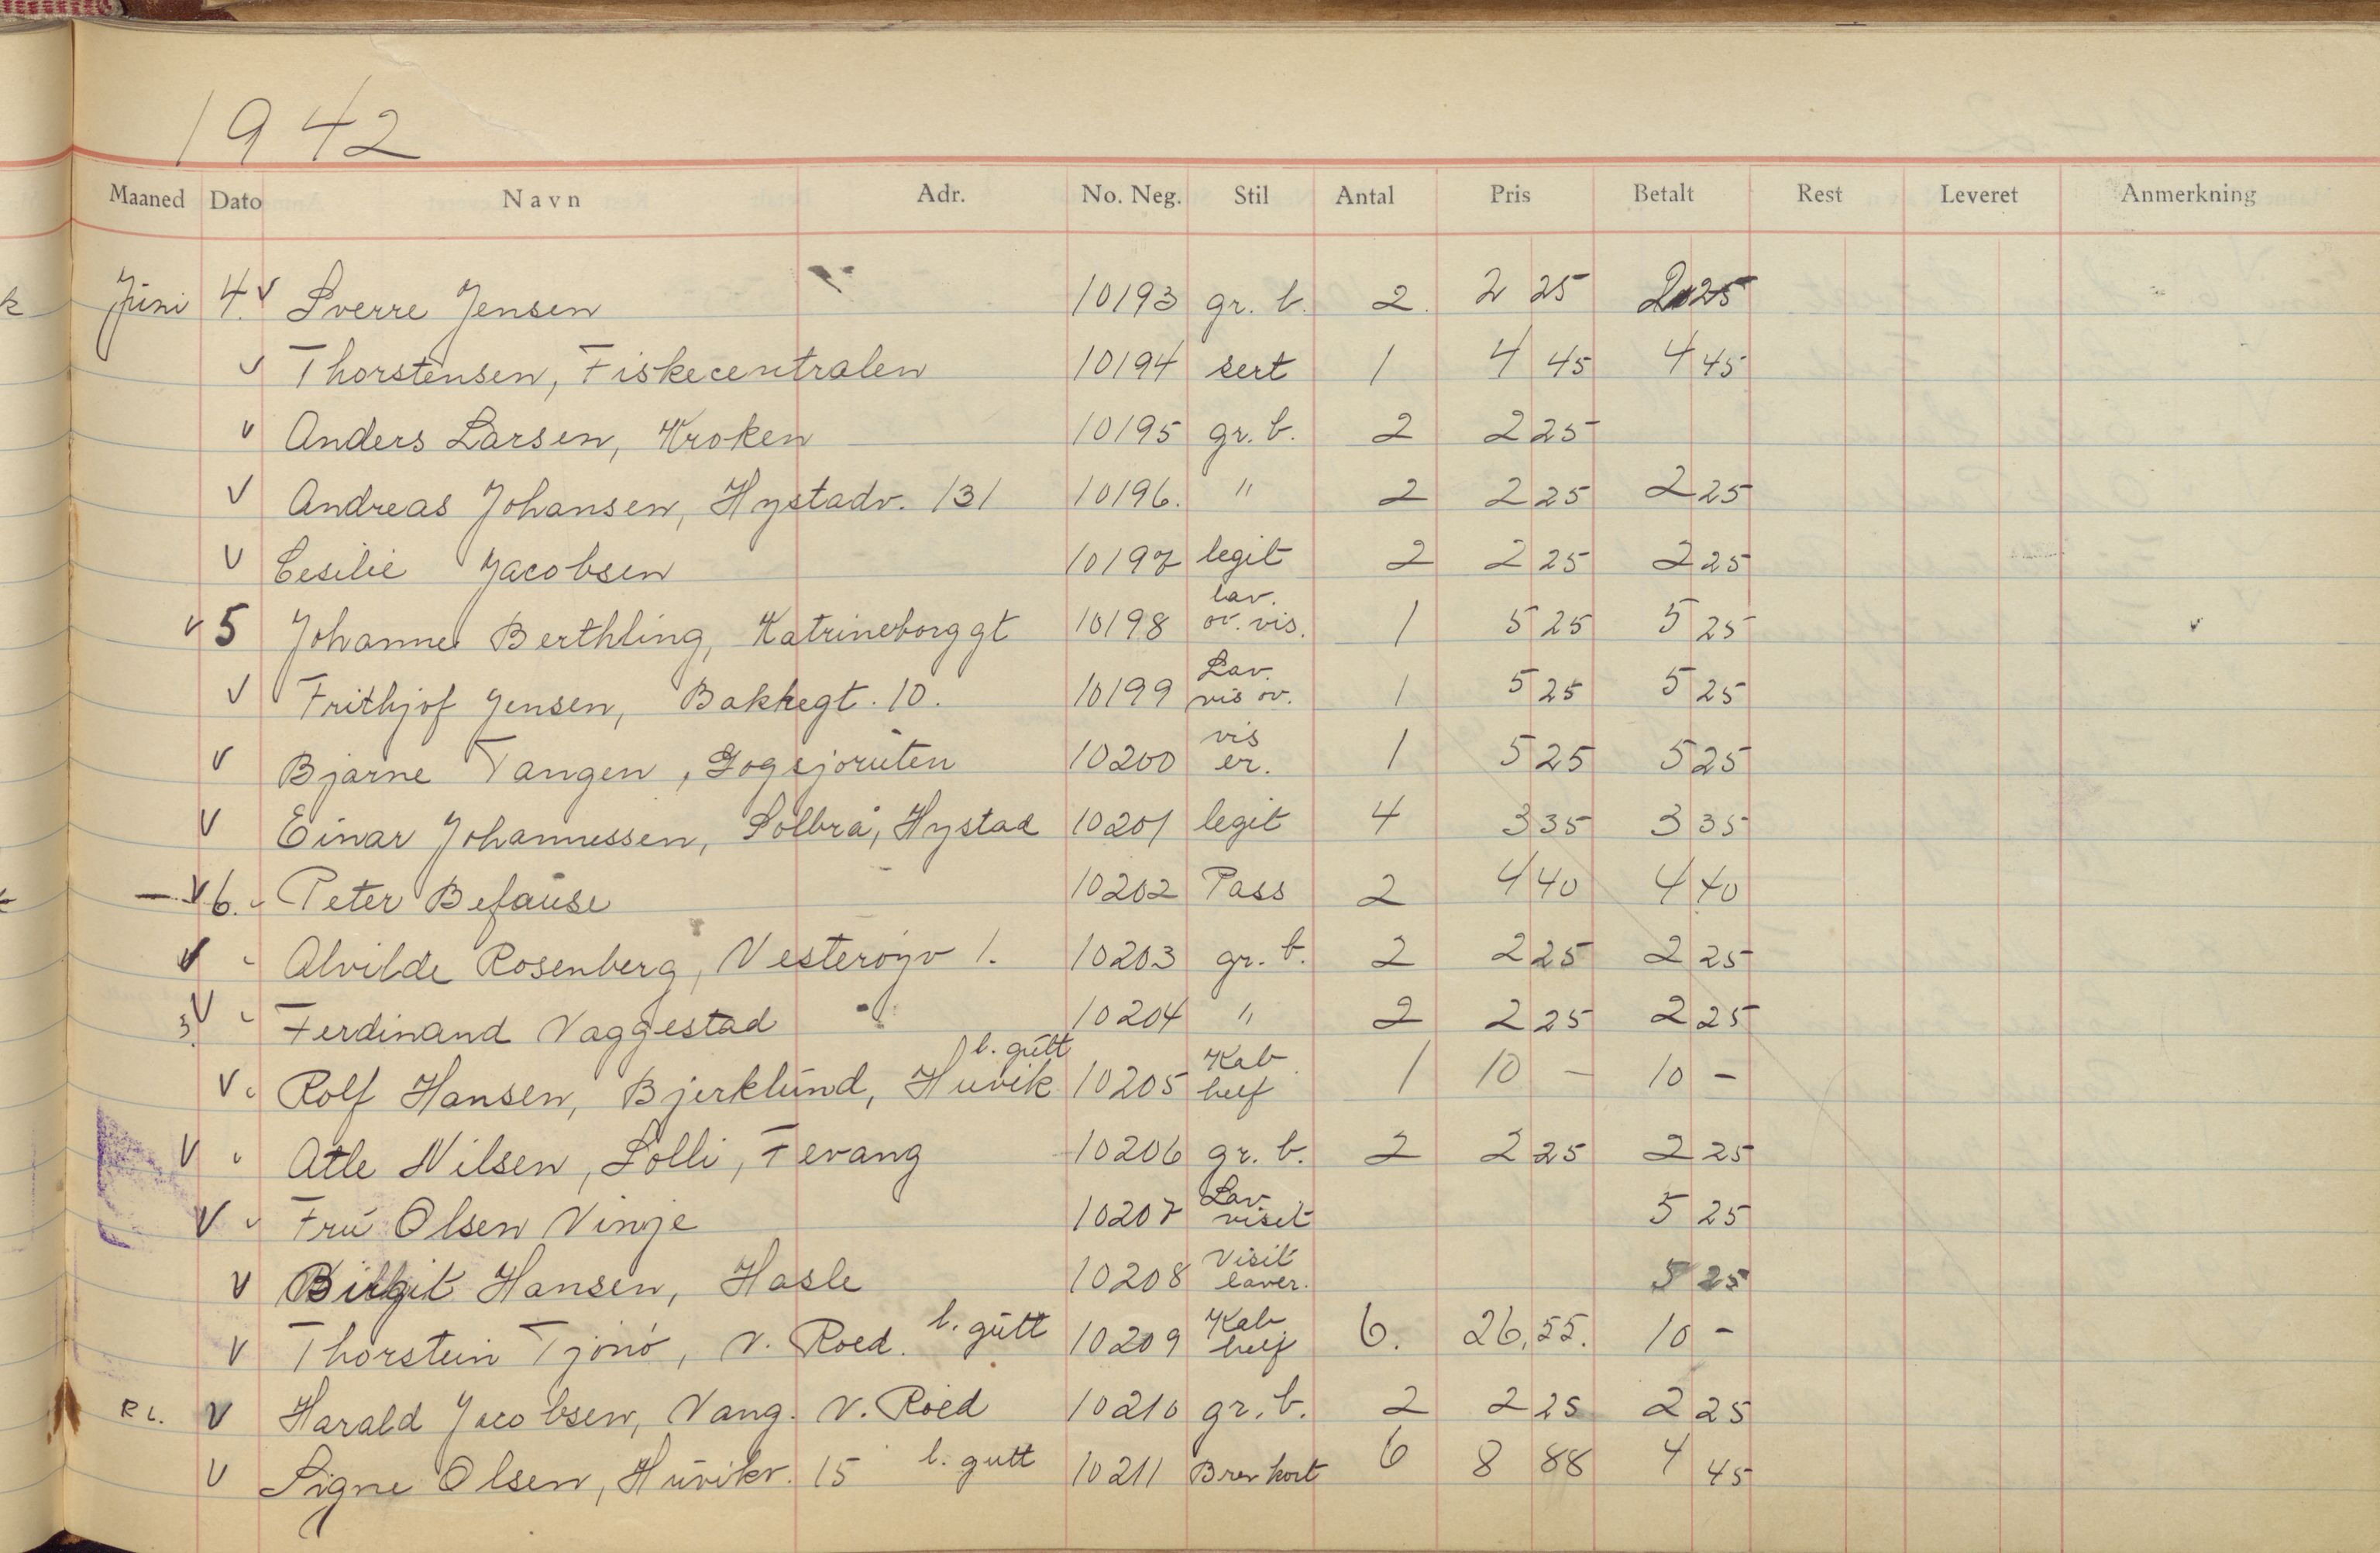 1942
Maaned Dato Navn Adr. No. Neg. Stil Antal Pris Betalt Rest Leveret Anmerkning
Juni 4. v Sverre Jensen 10193 gr. b. 2 2 25 2 25
v Thorstensen, Fiskecentralen 10194 sert 1 4 45 4 45
v Anders Larsen, Kroken 10195 gr. b. 2 2 25
v Andreas Johansen, Hystadv. 131 10196. " 2 2 25 2 25
v Cesilie Jacobsen 10197 legit 2 2 25 2 25
lav.
v 5 Johannes Berthling, Katrineborggt 10198 ov. vis. 1 5 25 5 25
Lav.
v Frithjof Jensen, Bakkegt. 10. 10199 vis ov. 1 5 25 5 25
vis
v Bjarne Tangen, 10200 er. 1 5 25 5 25
v Einar Johannessen, Solbrå, Hystad 10201 legit 4 3 35 3 35
— v 6. Peter Befause 10202 Pass 2 4 40 4 40
v Alvilde Rosenberg, Vesterøyv 1. 10203 gr. b. 2 2 25 2 25
v 3. Ferdinand Vaggestad 10204 " 2 2 25 2 25
l. gutt Kab
v Rolf Hansen, Bjerklund, Huvik 10205 helf 1 10 – 10 –
v Atle Nilsen, Solli, Fevang 10206 gr. b. 2 2 25 2 25
Lav.
v Fru Olsen Vinje 10207 visit 5 25
Visit
v Birgit Hansen, Hasle 10208 laver. 5 25
l. gutt Kab
v Thorstein Tjønø, N. Roed. 10209 helf 6. 26,55. 10 –
R L. v Harald Jacobsen, Vang. N. Roed 10210 gr. b. 2 2 25 2 25
v Signe Olsen, Huvikv. 15 l. gutt 10211 Brevkort 6 8 88 4 45